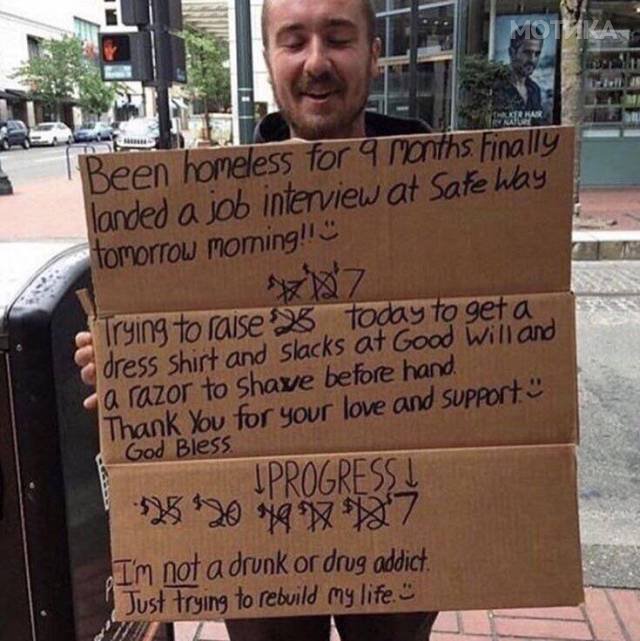 МОТИКА
Been homeless for 9 months. Finally
landed a job interview at Safe Way
tomorrow morning!!
$17 $12 7
Trying to raise $25 today to get a
dress shirt and slacks at Good Will and
a razor to shave before hand.
Thank You for your love and support.
God Bless
↓PROGRESS↓
$25 $20 $19 $17 $12 7
I'm not a drunk or drug addict.
Just trying to rebuild my life.